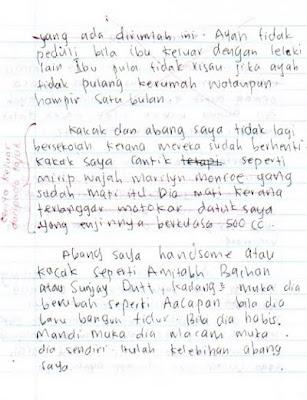 yang ada dirumah ini. Ayah tidak
peduli bila ibu keluar dengan leleki
lain Ibu pula tidak risau jika ayah
tidak pulang kerumah walaupun
hampir satu bulan.
Kakak dan abang saya tidak lagi
bersekolah kerana mereka sudah berhenti
kakak saya cantik tetapi seperti
mirip wajah marilyn monroe yang
sudah mati itu. Dia mati kerana
terlanggar motokar datuk saya
yang enjinnya berkuasa 500 cc.
Abang saya handsome atau
kacak seperti Amitabh Bachan
atau Sunjay Dutt, kadang2 muka dia
berubah seperti Aacapan bila dia
baru bangun tidur. Bila dia habis
mandi muka dia macam muka
dia sendiri. Itulah kelebihan abang
saya.